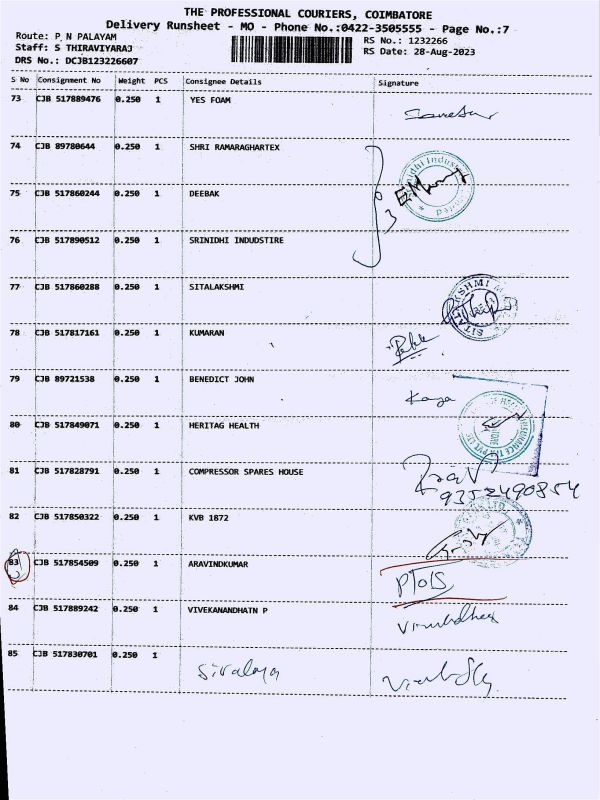 THE PROFESSIONAL COURIERS, COIMBATORE
Delivery Runsheet - MO - Phone No.:0422-3505555 - Page No.:7
Route: P N PALAYAM
Staff: S THIRAVIYARAJ
DRS No.: DCJB123226607
RS No.: 1232266
RS Date: 28-Aug-2023
S No Consignment No Weight PCS Consignee Details Signature
73 CJB 517889476 0.250 1 YES FOAM
74 CJB 89780644 0.250 1 SHRI RAMARAGHARTEX
75 CJB 517860244 0.250 1 DEEBAK
76 CJB 517890512 0.250 1 SRINIDHI INDUDSTIRE
77 CJB 517860288 0.250 1 SITALAKSHMI
78 CJB 517817161 0.250 1 KUMARAN
79 CJB 89721538 0.250 1 BENEDICT JOHN
80 CJB 517849071 0.250 1 HERITAG HEALTH
81 CJB 517828791 0.250 1 COMPRESSOR SPARES HOUSE
82 CJB 517850322 0.250 1 KVB 1872
83 CJB 517854509 0.250 1 ARAVINDKUMAR
84 CJB 517889242 0.250 1 VIVEKANANDHATN P
85 CJB 517830701 0.250 1